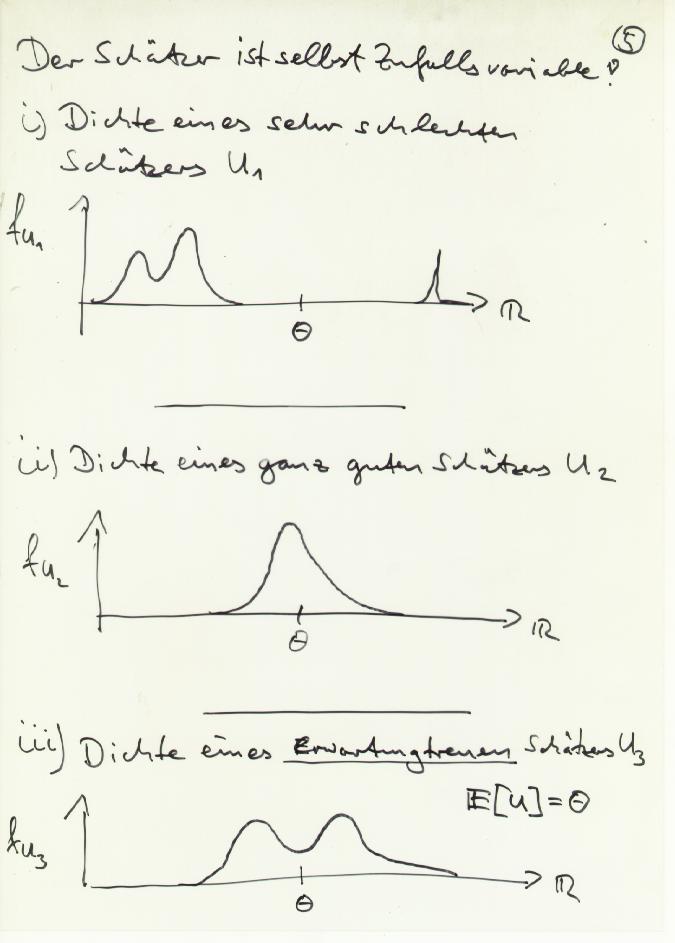 5
Der Schätzer ist selbst Zufallsvariable!
i) Dichte eines sehr schlechten
Schätzers U₁
fu₁
ℝ
Θ
ii) Dichte eines ganz guten Schätzers U₂
fu₂
ℝ
Θ
iii) Dichte eines Erwartungtreuen Schätzers U₃
𝔼[U] = Θ
fu₃
ℝ
Θ